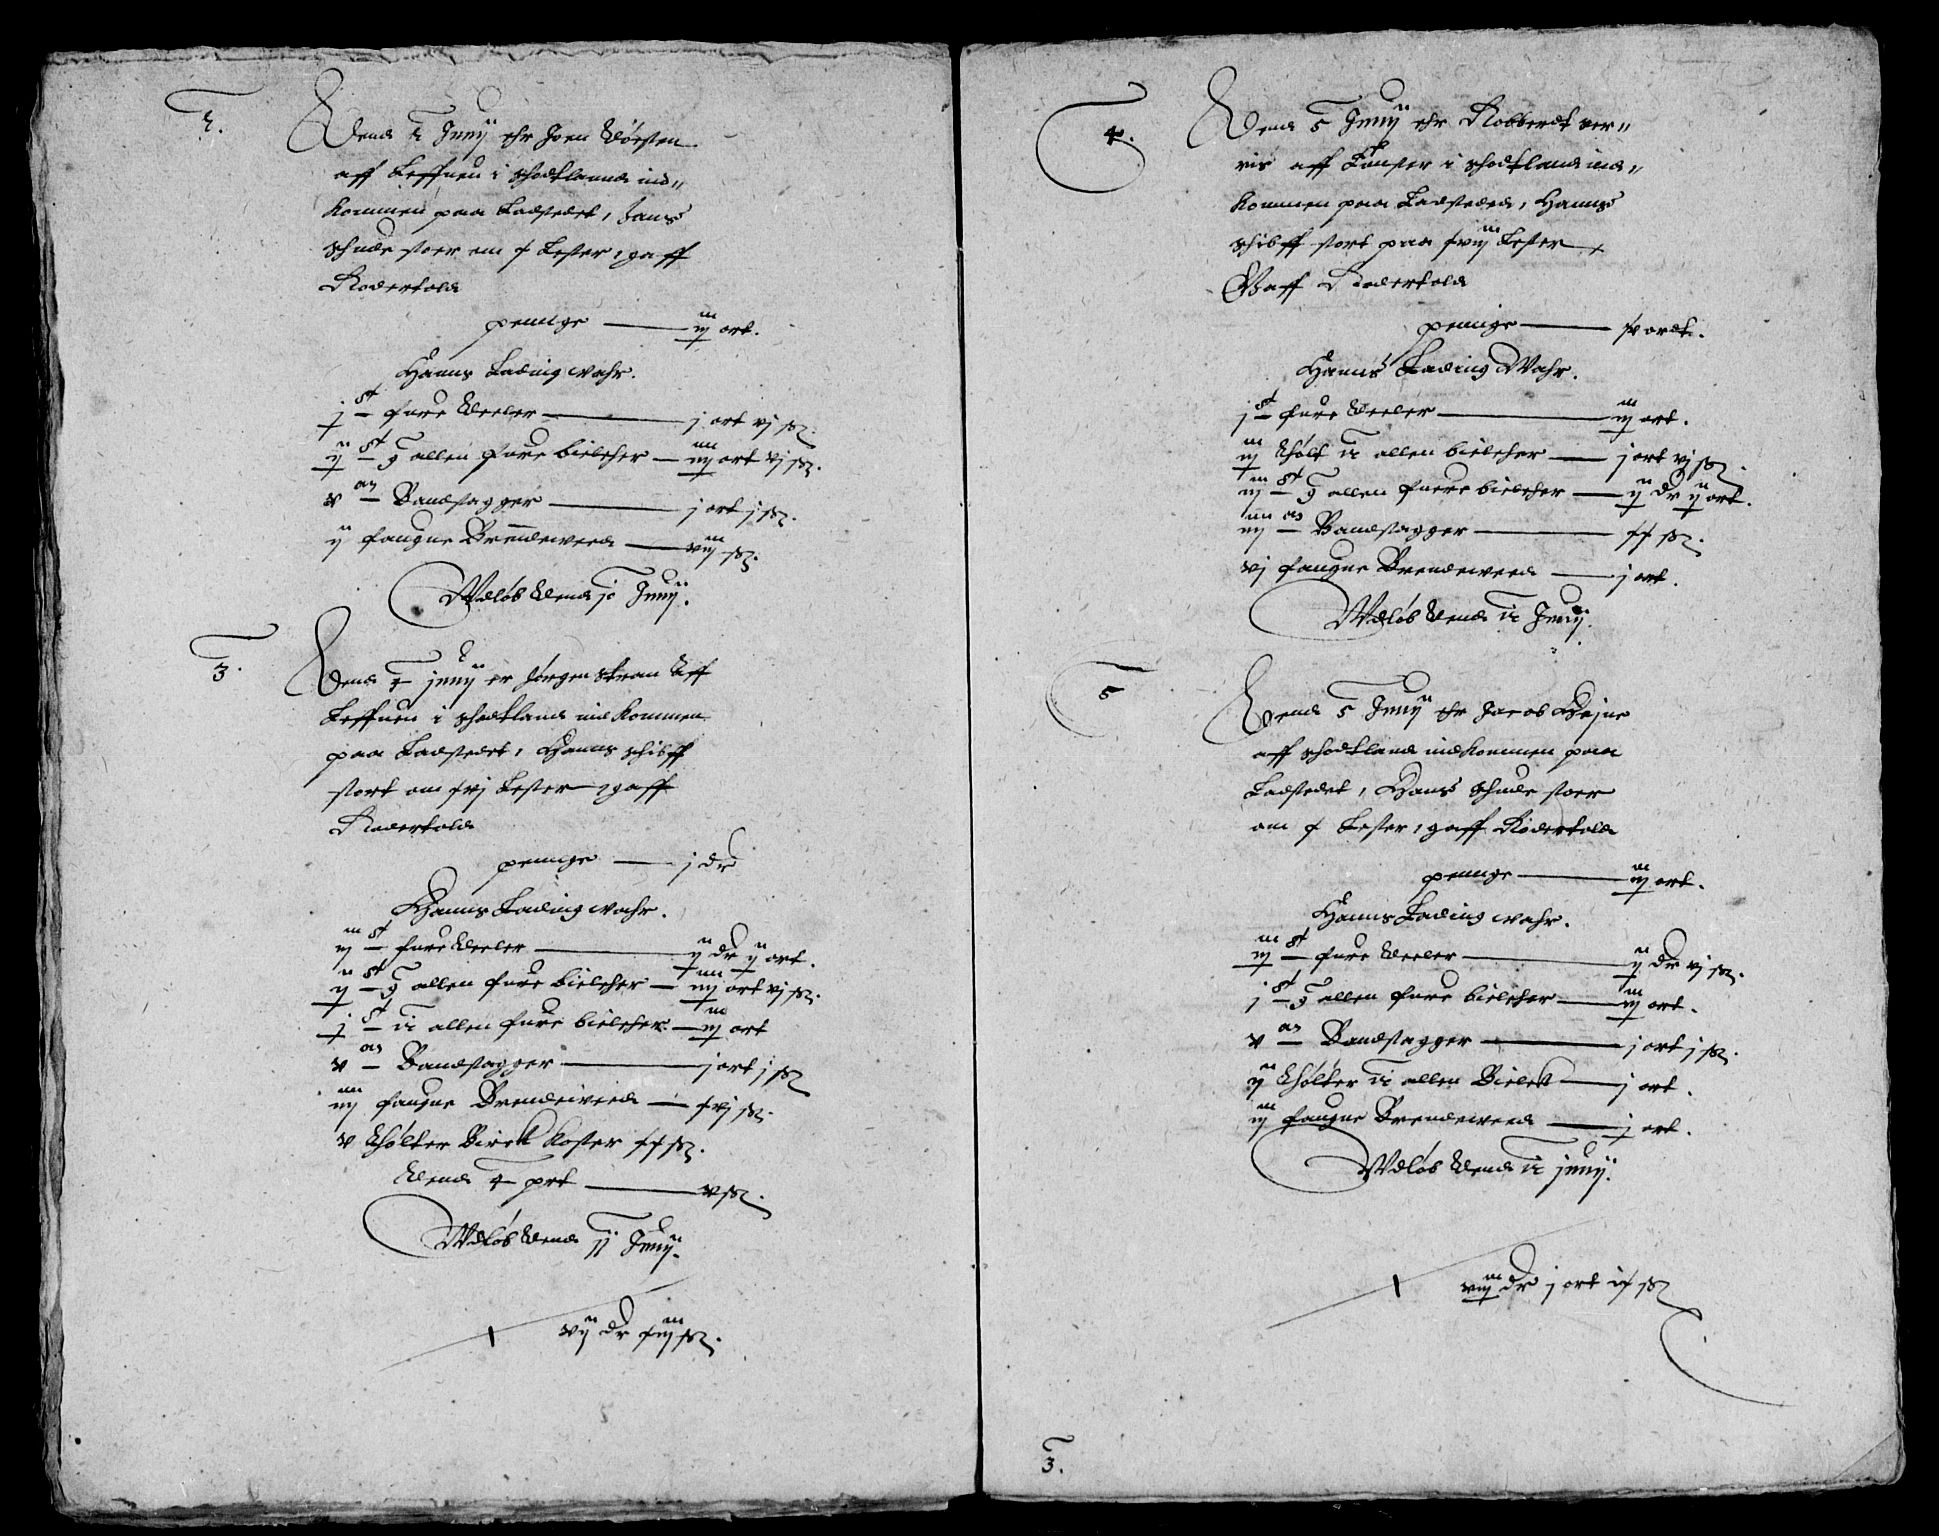 2.
Dend 2 Junij ehr Joen Dösten
aff Leffuen i Schottlannd ind„
kommen paa Ladstedet, Hans
Schude stoer om x Lester, gaff
Rodertold
penninge — iij ort.
Hanns Lading wahr.
j St fure deeler — j ort vj ß.
ij St 9 allen fure bielcher — iiij ort vj ß.
v as Baandstagger — j ort j ß.
ij faugne Brendeweed — viij ß.
Wdløb dend 10 Junij.
3.
Dend 4 Junij er Jörgen Stran Aff
Leffuen i Schottland ind kommen
paa Ladstedet, Hanns Schibff
stort om xvj Lester, gaff
Rodertold
penninge — j dr
Hanns Lading wahr.
iij St fure deeler — ij dr ij ort.
ij St 9 allen fure bielcher — iiij ort vj ß.
j St 12 allen fure bielcher — iij ort
v as Baandstagger — j ort j ß
iiij faugne Brendeweed — xvj ß.
v thölter Birck Roster xx ß.
Dend 4 prt — v ß.
Wdløb dend 11 Junij.
vij dr xiij ß.
4.
Dend 5 Junij ehr Robbert
aff i Schottland ind„
kommen paa Ladsteded, Hanns
Schibff stort paa xviij Lester
Gaff Rodertold
penninge — ort.
Hanns Lading Wahr.
j St fure deeler — iij ort.
iij thölt 12 allen bielcher — j ort vj ß.
iij St 9 allen fuere bielcher — ij dr ij ort.
iiij as Baandstagger — xx ß.
vj faugne Brendeweed — j ort.
Wdløb dend 12 Junij.
5
Dend 5 Junij ehr Jacob
aff Schottland indkommen paa
Ladstedet, Hans Schude stoer
om x Lester, gaff Rodertold
penninge — iij ort.
Hanns Lading wahr.
iij St fure deeler — ij dr vj ß.
j St 9 allen fure bielcher — iij ort.
v as Baandstagger — j ort j ß.
ij thölter 12 allen Bielck — j ort.
iij faugne Brendeweed — j ort.
Wdløb dend 12 junij.
viij dr j ort ix ß
3.